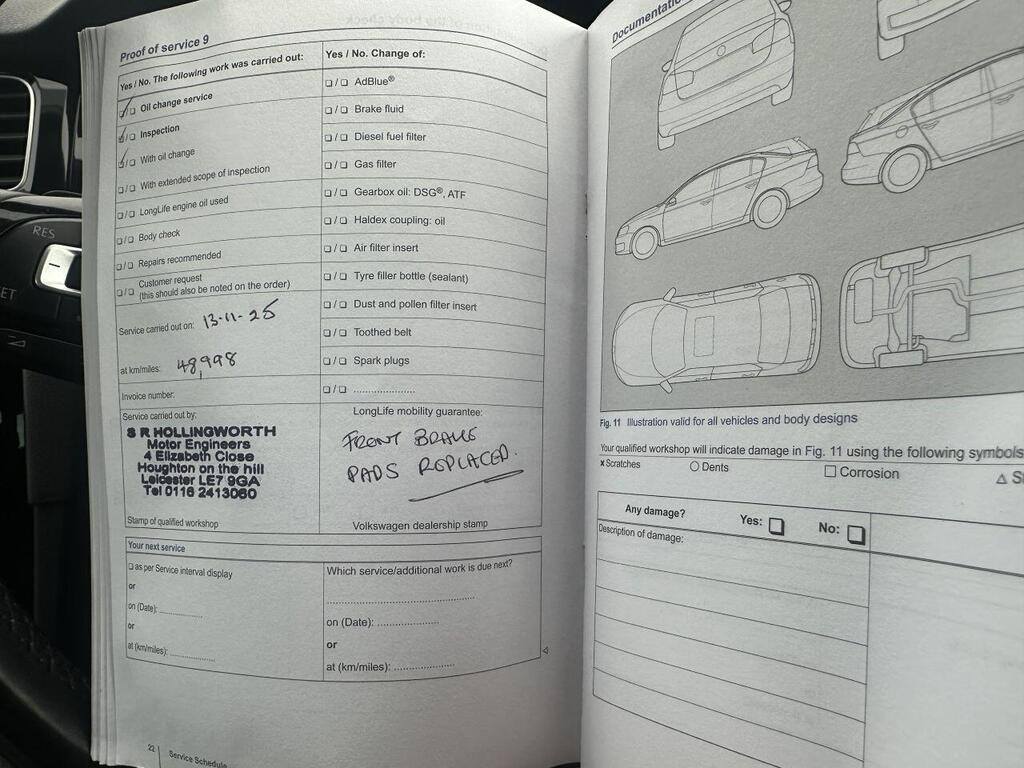 Proof of service 9
Yes / No. The following work was carried out:
☑/❏ Oil change service
☑/❏ Inspection
☑/❏ With oil change
❏/❏ With extended scope of inspection
❏/❏ LongLife engine oil used
❏/❏ Body check
❏/❏ Repairs recommended
❏/❏ Customer request
(this should also be noted on the order)
Service carried out on: 13-11-25
at km/miles: 48,998
Invoice number:
Service carried out by:
S R HOLLINGWORTH
Motor Engineers
4 Elizabeth Close
Houghton on the hill
Leicester LE7 9GA
Tel 0116 2413060
Stamp of qualified workshop
Yes / No. Change of:
❏/❏ AdBlue®
❏/❏ Brake fluid
❏/❏ Diesel fuel filter
❏/❏ Gas filter
❏/❏ Gearbox oil: DSG®, ATF
❏/❏ Haldex coupling: oil
❏/❏ Air filter insert
❏/❏ Tyre filler bottle (sealant)
❏/❏ Dust and pollen filter insert
❏/❏ Toothed belt
❏/❏ Spark plugs
❏/❏ ..................
LongLife mobility guarantee:
FRONT BRAKE
PADS REPLACED.
Volkswagen dealership stamp
Your next service
❏ as per Service interval display
or
on (Date): ..................
or
at (km/miles): ..................
Which service/additional work is due next?
..........................................
on (Date): ..................
or
at (km/miles): ..................
22 Service Schedule
Documentatio
Fig. 11 Illustration valid for all vehicles and body designs
Your qualified workshop will indicate damage in Fig. 11 using the following symbols
x Scratches
○ Dents
□ Corrosion
△ S
Any damage? Yes: ❏ No: ❏
Description of damage:
RES